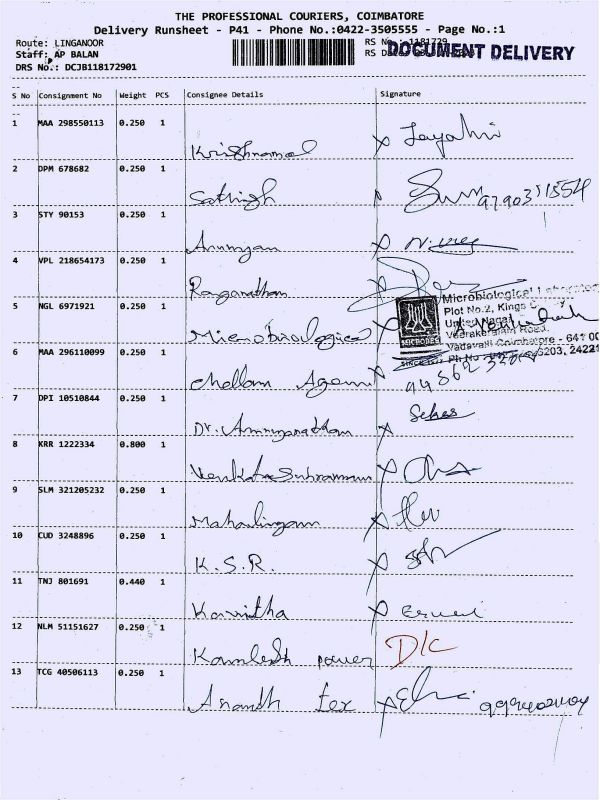 THE PROFESSIONAL COURIERS, COIMBATORE
Delivery Runsheet - P41 - Phone No.:0422-3505555 - Page No.:1
Route: LINGANOOR
Staff: AP BALAN
DRS No.: DCJB118172901
RS No.: 1181729
RS Date
DOCUMENT DELIVERY
S No Consignment No Weight PCS Consignee Details Signature
1 MAA 298550113 0.250 1
Krishnamal
2 DPM 678682 0.250 1
Sathish 9790351554
3 STY 90153 0.250 1
4 VPL 218654173 0.250 1
Raganathan
Microbiological Laboratory
Plot No.2, Kings
5 NGL 6971921 0.250 1
Microbiological
Veerakeralam Road,
MICROBE
Vadavalli Coimbatore - 641 0
Ph No 6203, 24221
6 MAA 296110099 0.250 1
Chellam
7 DPI 10510844 0.250 1
Dr.
8 KRR 1222334 0.800 1
Venkatasubramani
9 SLM 321205232 0.250 1
Mahalingam
10 CUD 3248896 0.250 1
K.S.R.
11 TNJ 801691 0.440 1
Kavitha
12 NLM 51151627 0.250 1
Kamlesh power D/C
13 TCG 40506113 0.250 1
Ananth Tex